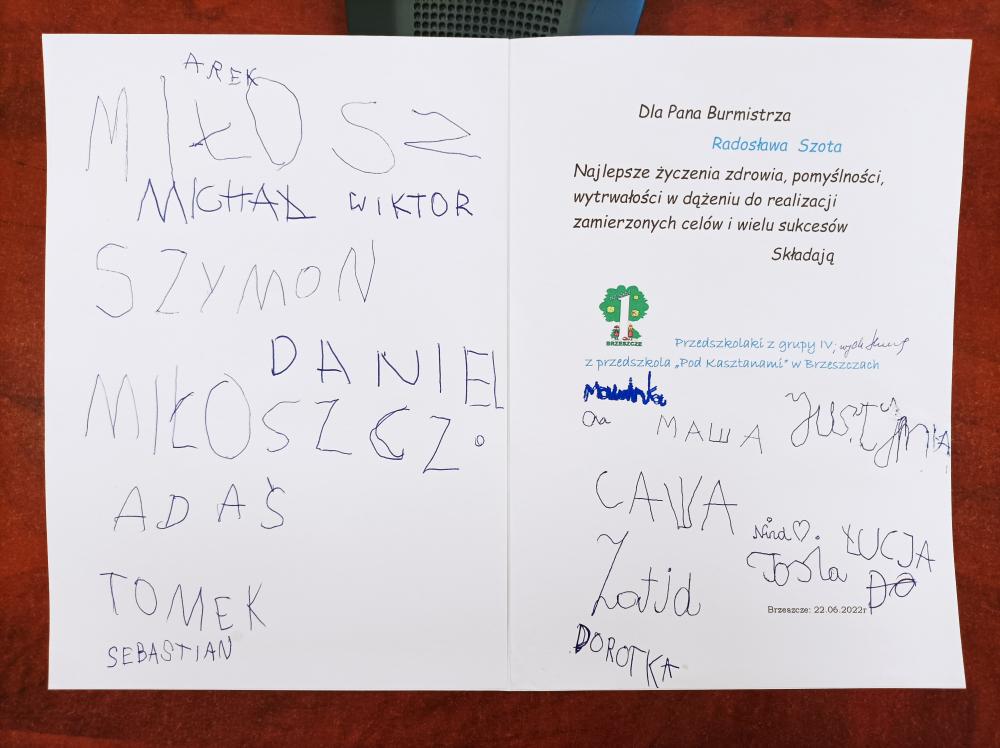 AREK
MIŁOSZ
MICHAŁ WIKTOR
SZYMON
DANIEL
MIŁOSZ CZ.
ADAŚ
TOMEK
SEBASTIAN
Dla Pana Burmistrza
Radosława Szota
Najlepsze życzenia zdrowia, pomyślności,
wytrwałości w dążeniu do realizacji
zamierzonych celów i wielu sukcesów
Składają
1
BRZESZCZE
Przedszkolaki z grupy IV;
z przedszkola „Pod Kasztanami” w Brzeszczach
МАША
CAWA
ŁUCJA
Brzeszcze: 22.06.2022r
DO
DOROTKA